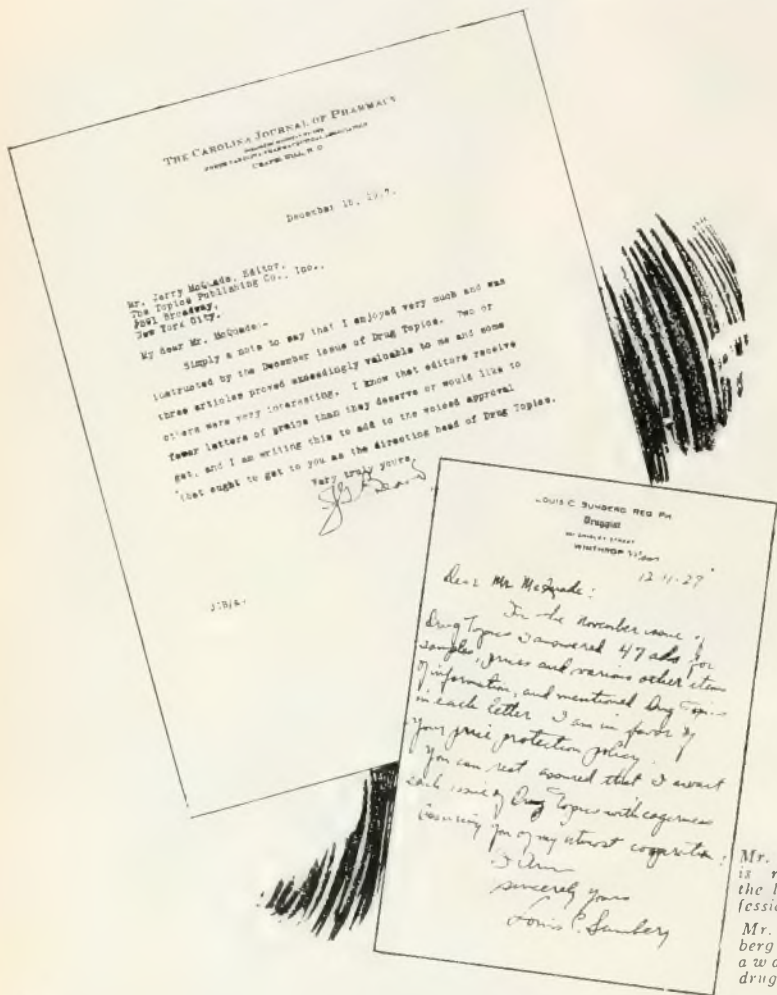 THE CAROLINA JOURNAL OF PHARMACY
CHAPEL HILL, N. C.
December 15, 1927.
Mr. Jerry McQuade, Editor,
The Topics Publishing Co., Inc.,
Broadway,
New York City.
My dear Mr. McQuade:-
Simply a note to say that I enjoyed very much and was
instructed by the December issue of Drug Topics. Two or
three articles proved exceedingly valuable to me and some
others were very interesting. I know that editors receive
fewer letters of praise than they deserve or would like to
get, and I am writing this to add to the voiced approval
that ought to get to you as the directing head of Drug Topics.
Very truly yours,
J G Beard
LOUIS C. SUMBERG REG PH
Druggist
SHIRLEY STREET
WINTHROP
12-11-27
Dear Mr McQuade:
In the November issue of
Drug Topics I answered 47 ads for
samples, prices and various other items
of information, and mentioned Drug Topics
in each letter. I am in favor of
your price protection policy.
You can rest assured that I await
each issue of Drug Topics with eagerness
Assuring you of my utmost cooperation:
I Am
Sincerely yours
Louis C. Sumberg
Mr.
is
the
fessio
Mr.
berg
a w
drug